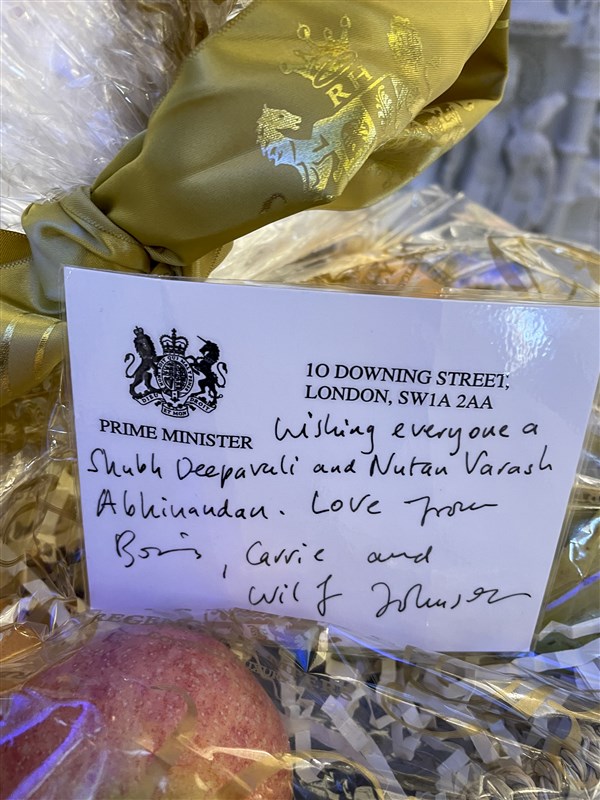 RH
10 DOWNING STREET,
LONDON, SW1A 2AA
PRIME MINISTER
Wishing everyone a
Shubh Deepavali and Nutan Varash
Abhinandan. Love from
Boris, Carrie and
Wilf Johnson